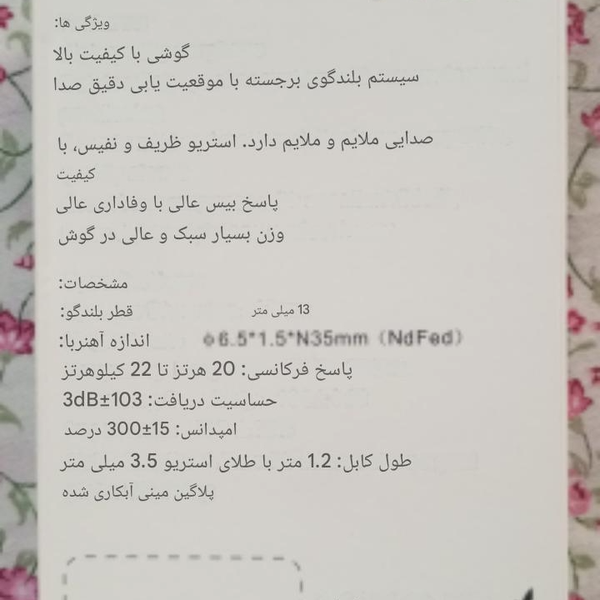 ویژگی ها:
گوشی با کیفیت بالا
سیستم بلندگوی برجسته با موقعیت یابی دقیق صدا
صدایی ملایم و ملایم دارد. استریو ظریف و نفیس، با
کیفیت
پاسخ بیس عالی با وفاداری عالی
وزن بسیار سبک و عالی در گوش
مشخصات:
قطر بلندگو: 13 میلی متر
اندازه آهنربا: Φ6.5*1.5*N35mm (NdFed)
پاسخ فرکانسی: 20 هرتز تا 22 کیلوهرتز
حساسیت دریافت: 103±3dB
امپدانس: 15±300 درصد
طول کابل: 1.2 متر با طلای استریو 3.5 میلی متر
پلاگین مینی آبکاری شده